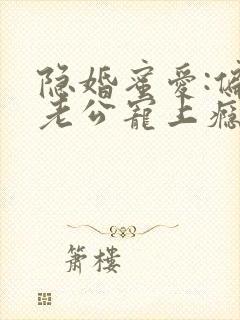 隐婚蜜爱:偏
老公宠上瘾
箫楼